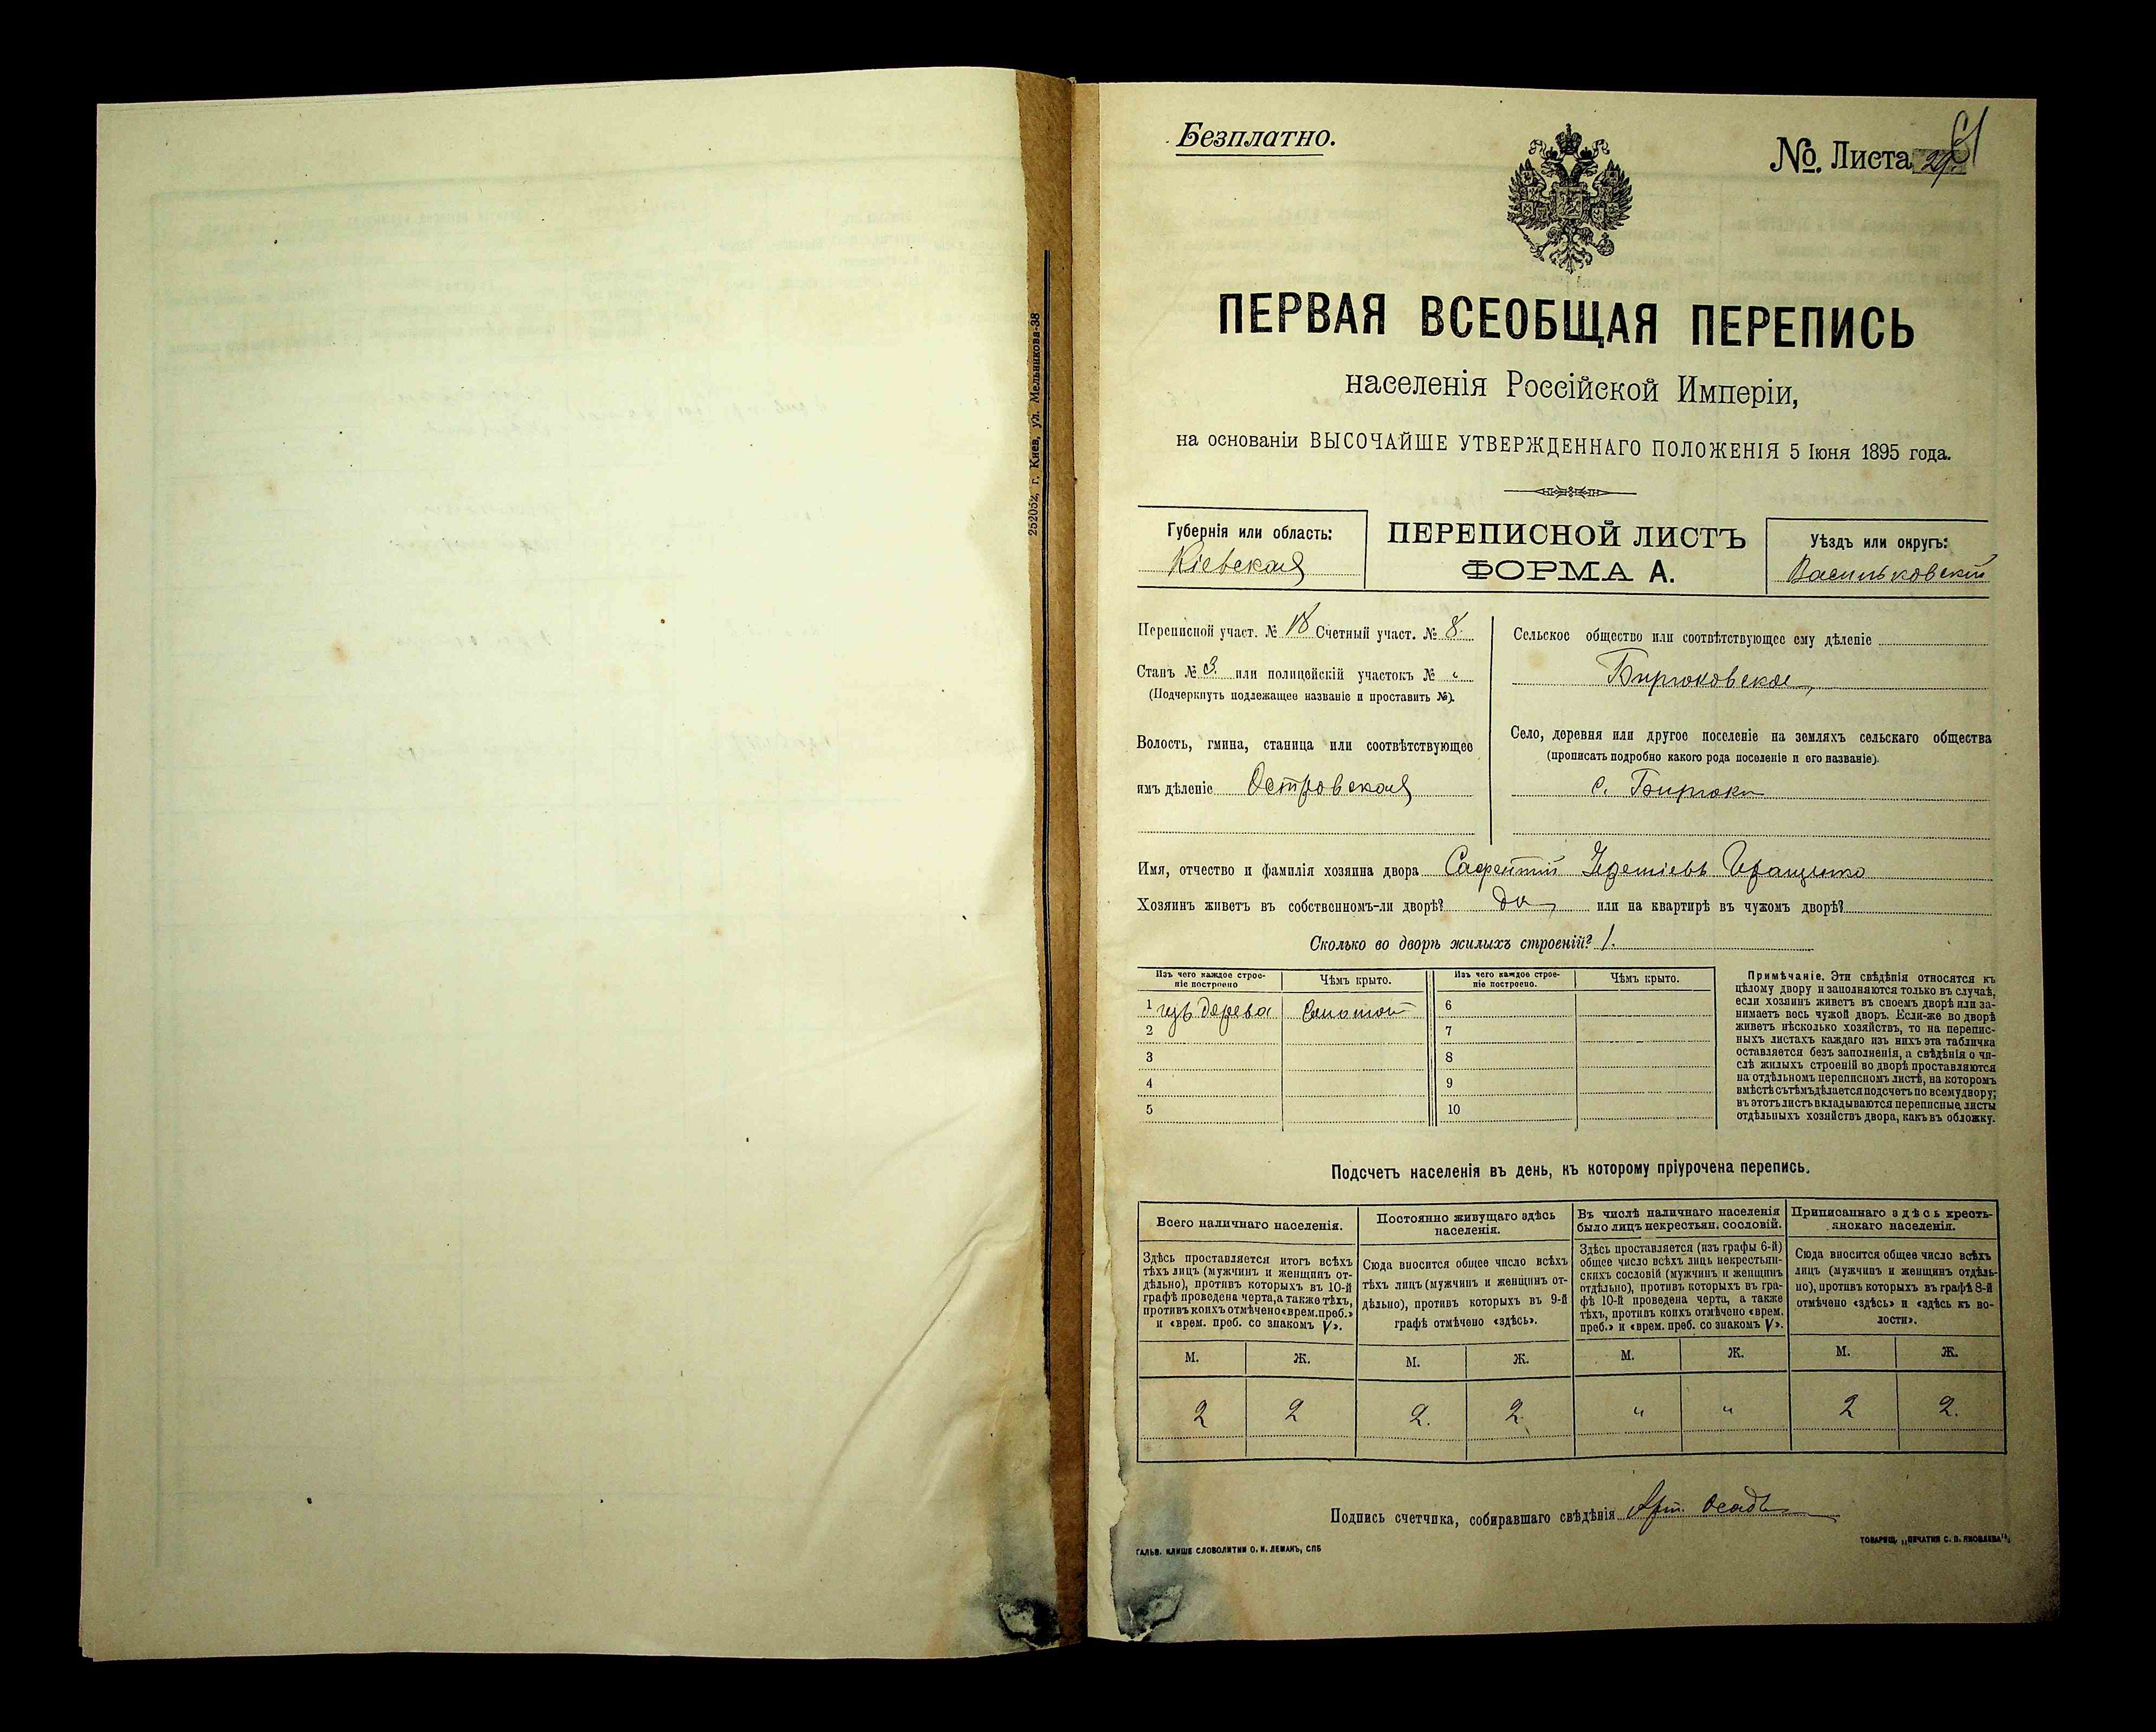 252052, г. Киев, ул. Мельникова-38
Безплатно.
№ Листа
ПЕРВАЯ ВСЕОБЩАЯ ПЕРЕПИСЬ
населенія Россійской Имперіи,
на основаніи ВЫСОЧАЙШЕ УТВЕРЖДЕННАГО ПОЛОЖЕНІЯ 5 Іюня 1895 года.
Губернія или область:
Кіевская
ПЕРЕПИСНОЙ ЛИСТЪ
ФОРМА А.
Уѣздъ или округъ:
Васильковскій
Переписной участ. № 18 Счетный участ. № 8.
Станъ № 3. или полицейскій участокъ № "
(Подчеркнуть подлежащее названіе и проставить №).
Волость, гмина, станица или соотвѣтствующее
имъ дѣленіе Островская
Сельское общество или соотвѣтствующее ему дѣленіе
Бирюковское
Село, деревня или другое поселеніе на земляхъ сельскаго общества
(прописать подробно какого рода поселеніе и его названіе).
с. Бирюки
Имя, отчество и фамилія хозяина двора
Хозяинъ живетъ въ собственномъ-ли дворѣ? да или на квартирѣ въ чужомъ дворѣ?
Сколько во дворѣ жилыхъ строеній? 1.
Изъ чего каждое строе-
ніе построено
Чѣмъ крыто.
Изъ чего каждое строе-
ніе построено.
Чѣмъ крыто.
1 изъ дерева Соломой 6
2 7
3 8
4 9
5 10
Примѣчаніе. Эти свѣдѣнія относятся къ
цѣлому двору и заполняются только въ случаѣ,
если хозяинъ живетъ въ своемъ дворѣ или за-
нимаетъ весь чужой дворъ. Если-же во дворѣ
живетъ нѣсколько хозяйствъ, то на перепис-
ныхъ листахъ каждаго изъ нихъ эта табличка
оставляется безъ заполненія, а свѣдѣнія о чи-
слѣ жилыхъ строеній во дворѣ проставляются
на отдѣльномъ переписномъ листѣ, на которомъ
вмѣстѣ съ тѣмъ дѣлается подсчетъ по всему двору;
въ этотъ листъ вкладываются переписные листы
отдѣльныхъ хозяйствъ двора, какъ въ обложку.
Подсчетъ населенія въ день, къ которому пріурочена перепись.
Всего наличнаго населенія.
Здѣсь проставляется итогъ всѣхъ
тѣхъ лицъ (мужчинъ и женщинъ от-
дѣльно), противъ которыхъ въ 10-й
графѣ проведена черта, а также тѣхъ,
противъ коихъ отмѣчено «врем. преб.»
и «врем. преб. со знакомъ V».
Постоянно живущаго здѣсь
населенія.
Сюда вносится общее число всѣхъ
тѣхъ лицъ (мужчинъ и женщинъ от-
дѣльно), противъ которыхъ въ 9-й
графѣ отмѣчено «здѣсь».
Въ числѣ наличнаго населенія
было лицъ некрестьян. сословій.
Здѣсь проставляется (изъ графы 6-й)
общее число всѣхъ лицъ некрестьян-
скихъ сословій (мужчинъ и женщинъ
отдѣльно), противъ которыхъ въ гра-
фѣ 10-й проведена черта, а также
тѣхъ, противъ коихъ отмѣчено «врем.
преб.» и «врем. преб. со знакомъ V».
Приписаннаго здѣсь кресть-
янскаго населенія.
Сюда вносится общее число всѣхъ
лицъ (мужчинъ и женщинъ отдѣль-
но), противъ которыхъ въ графѣ 8-й
отмѣчено «здѣсь» и «здѣсь къ во-
лости».
М. Ж. М. Ж. М. Ж. М. Ж.
2 2 2. 2. " " 2 2.
Подпись счетчика, собиравшаго свѣдѣнія
ГАЛЬВ. КЛИШЕ СЛОВОЛИТНИ О. И. ЛЕМАНЪ, СПБ
ТОВАРИЩ. „ПЕЧАТНЯ С. П. ЯКОВЛЕВА"